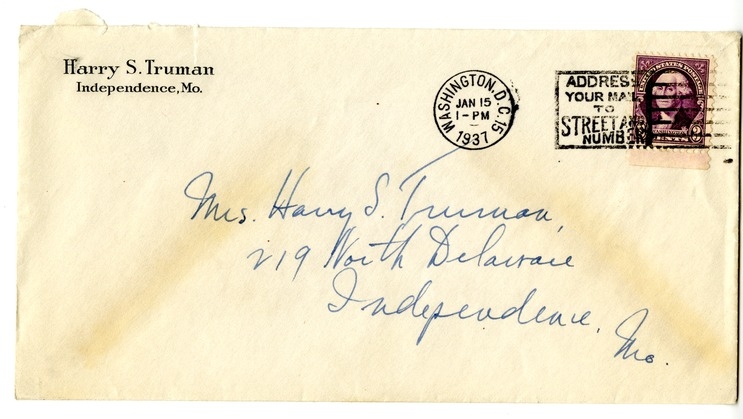 Harry S. Truman
Independence, Mo.
WASHINGTON, D.C. 15
JAN 15
1-PM
1937
ADDRESS
YOUR MAIL
TO
STREET AND
NUMBER
UNITED STATES POSTAGE
3
Mrs. Harry S. Truman,
219 North Delaware
Independence,
Mo.